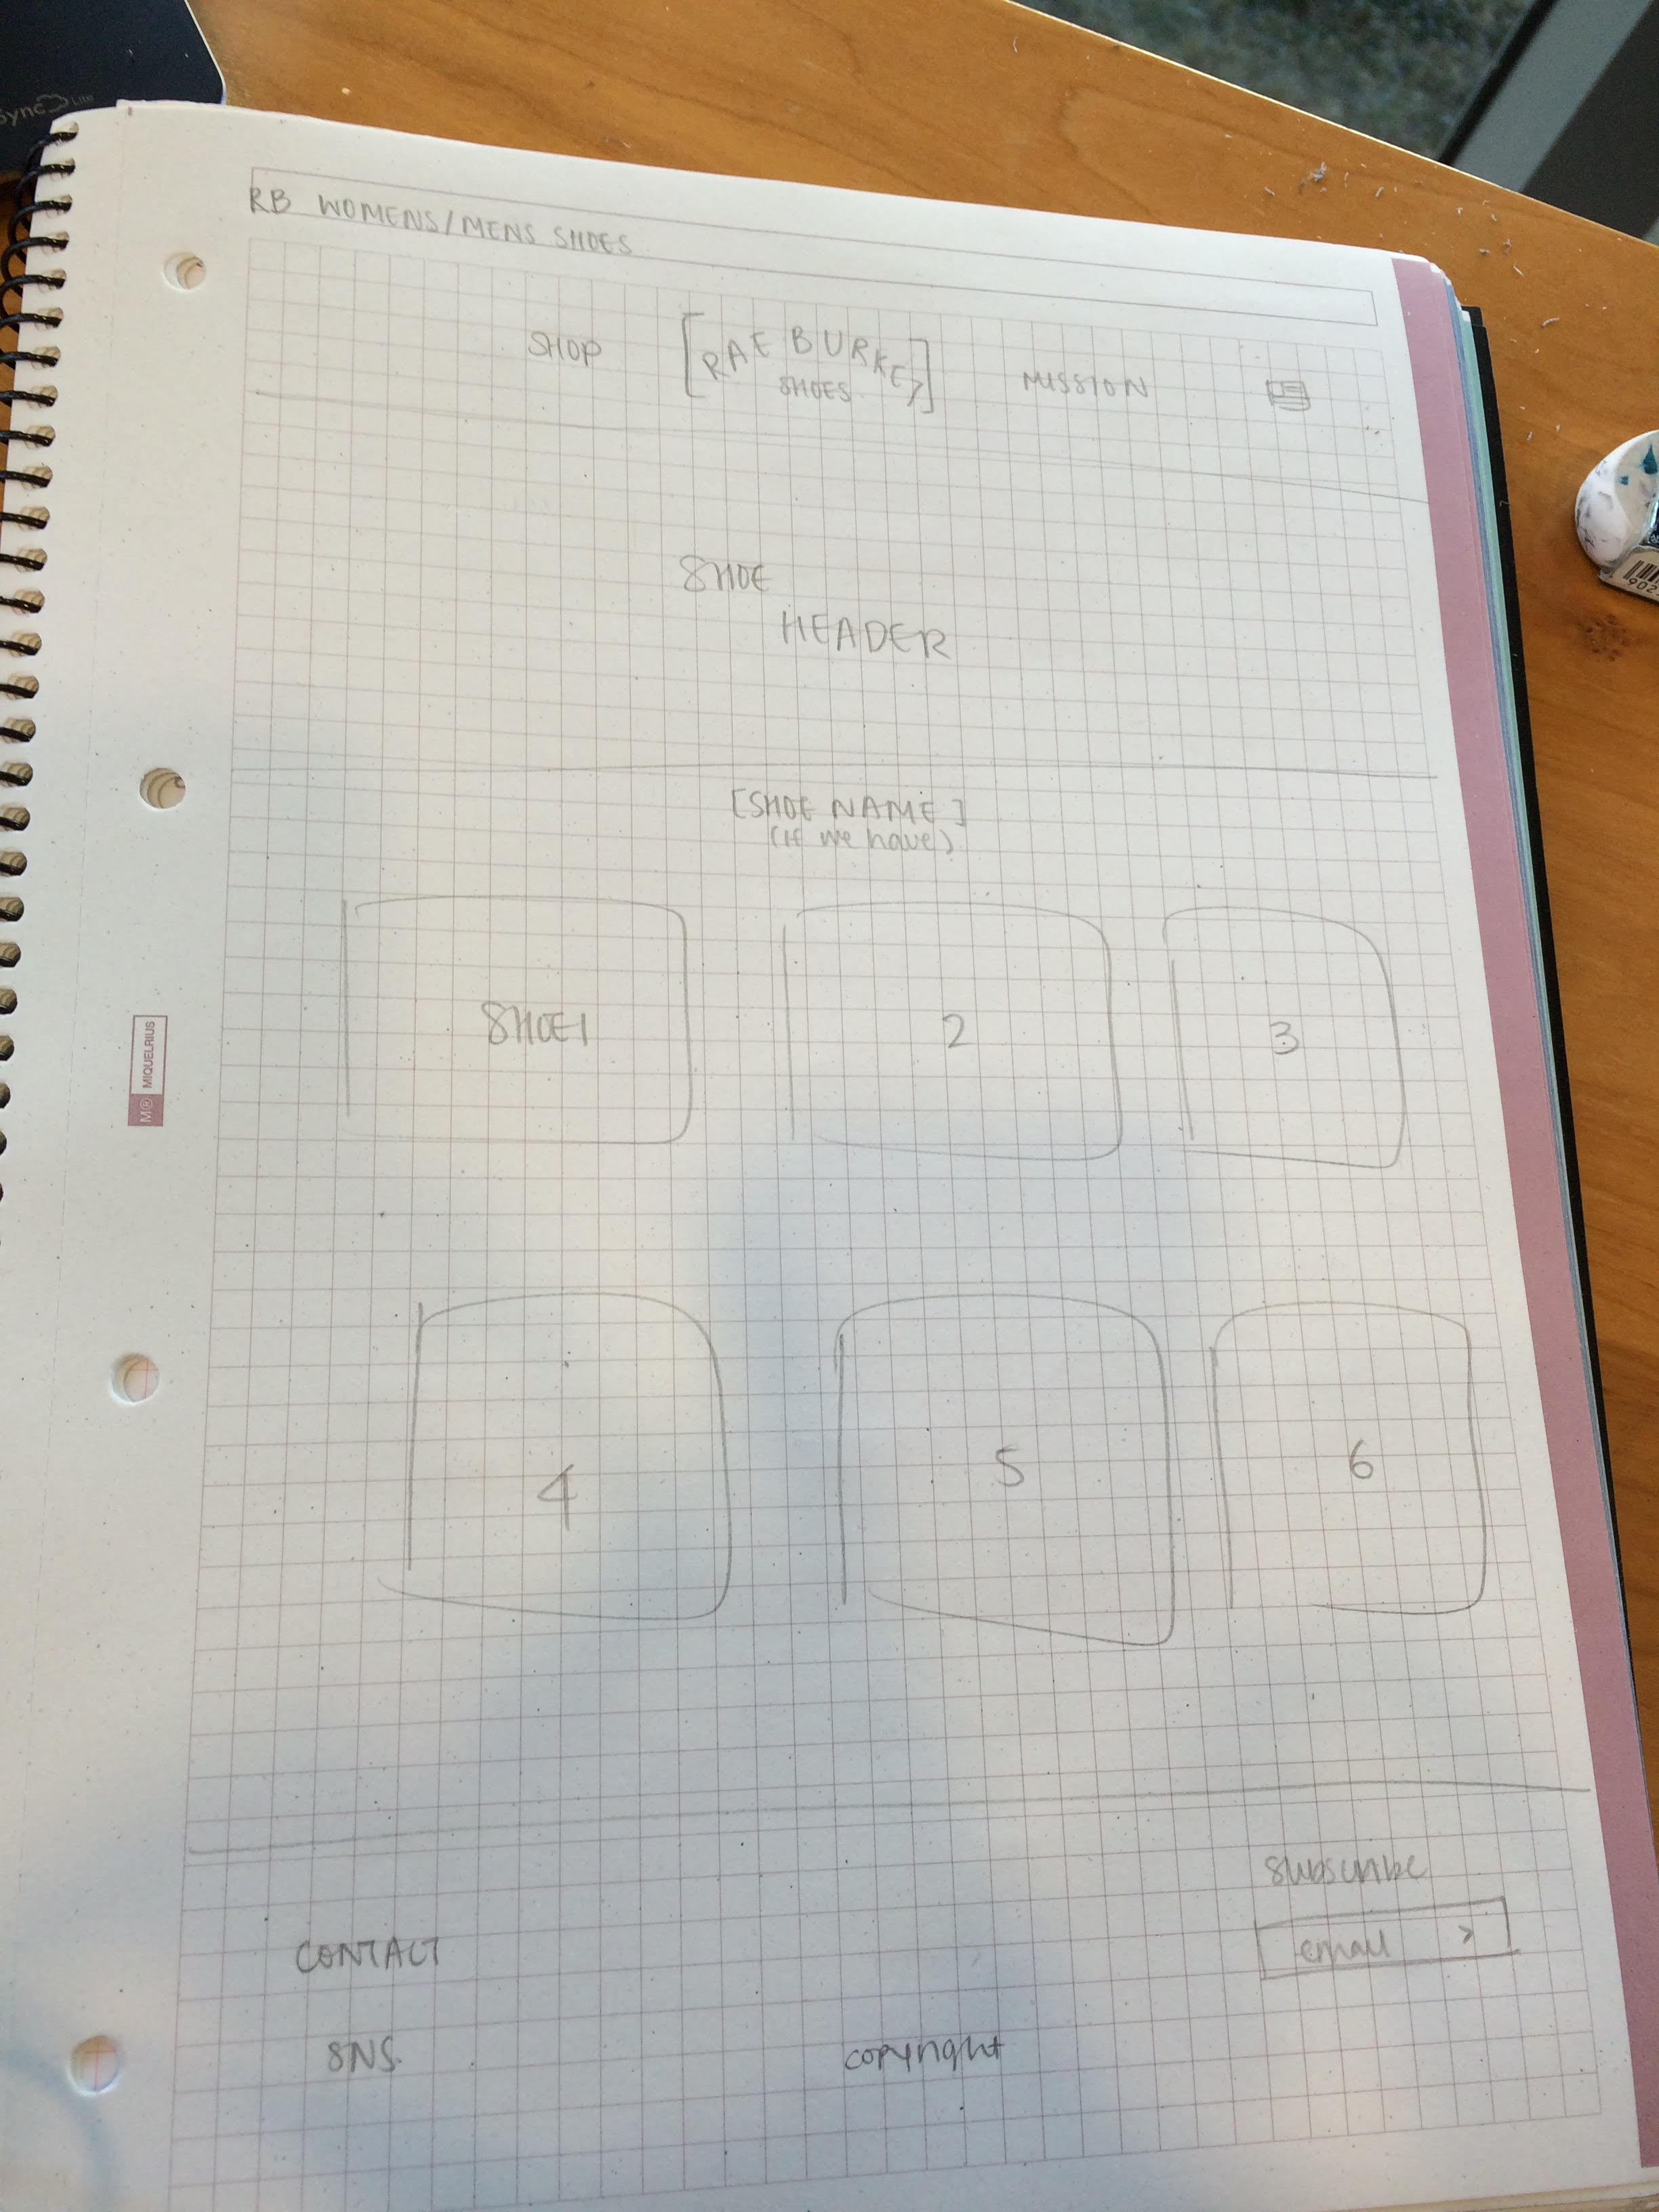 Sync Lite
RB WOMENS/MENS SHOES
SHOP
[RAE BURKE]
SHOES
MISSION
SHOE
HEADER
[SHOE NAME]
(if we have)
SHOE 1
2
3
M® MIQUELRIUS
4
5
6
subscribe
email >
CONTACT
SNS
copyright